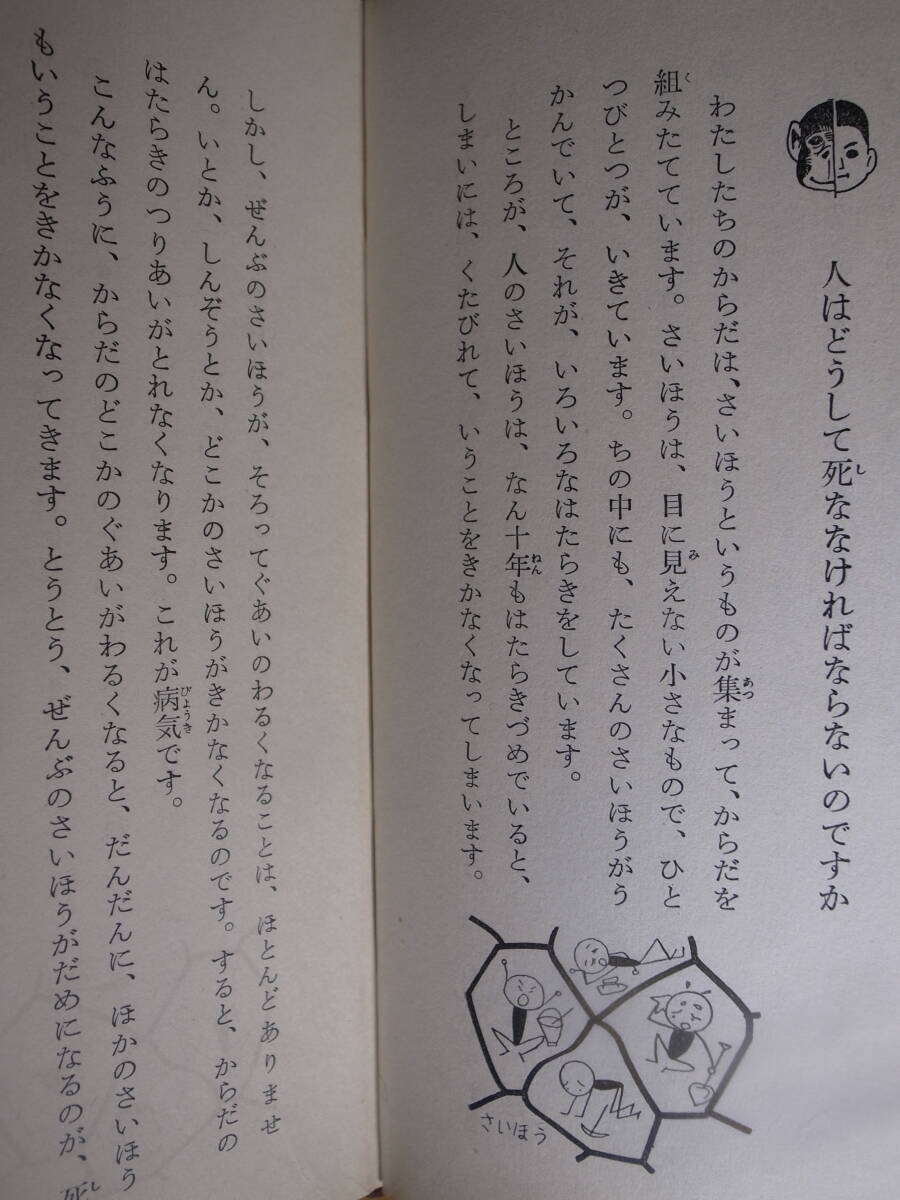 人はどうして死ななければならないのですか
わたしたちのからだは、さいほうというものが集まって、からだを
組みたてています。さいほうは、目に見えない小さなもので、ひと
つびとつが、いきています。ちの中にも、たくさんのさいほうがう
かんでいて、それが、いろいろなはたらきをしています。
ところが、人のさいほうは、なん十年もはたらきづめでいると、
しまいには、くたびれて、いうことをきかなくなってしまいます。
さいほう
しかし、ぜんぶのさいほうが、そろってぐあいのわるくなることは、ほとんどありませ
ん。いとか、しんぞうとか、どこかのさいほうがきかなくなるのです。すると、からだの
はたらきのつりあいがとれなくなります。これが病気です。
こんなふうに、からだのどこかのぐあいがわるくなると、だんだんに、ほかのさいほう
もいうことをきかなくなってきます。とうとう、ぜんぶのさいほうがだめになるのが、死